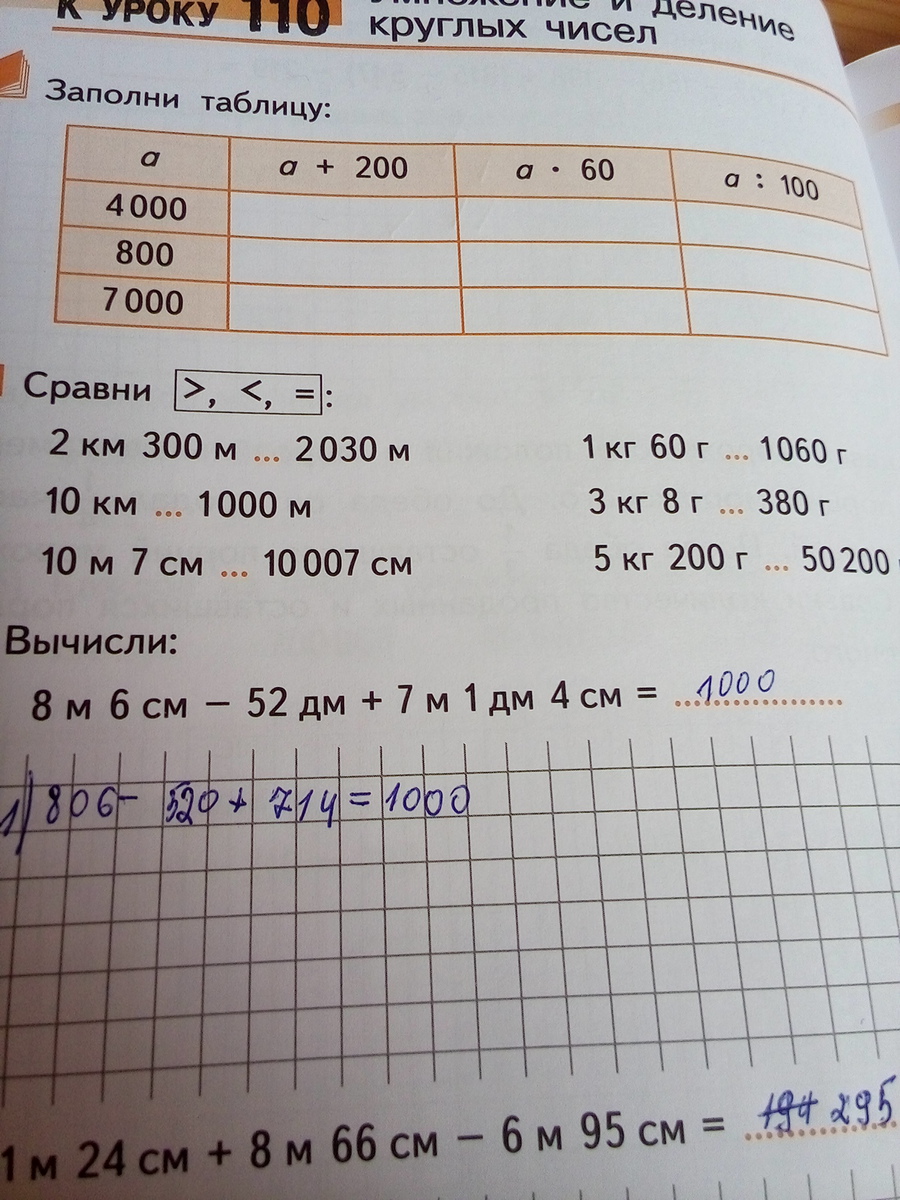 К УРОКУ 110 Умножение и деление
круглых чисел
Заполни таблицу:
a a + 200 a · 60 a : 100
4000
800
7000
Сравни >, <, = :
2 км 300 м ... 2030 м 1 кг 60 г ... 1060 г
10 км ... 1000 м 3 кг 8 г ... 380 г
10 м 7 см ... 10007 см 5 кг 200 г ... 50200
Вычисли:
8 м 6 см − 52 дм + 7 м 1 дм 4 см = 1000
1) 806 − 520 + 714 = 1000
1 м 24 см + 8 м 66 см − 6 м 95 см = 295